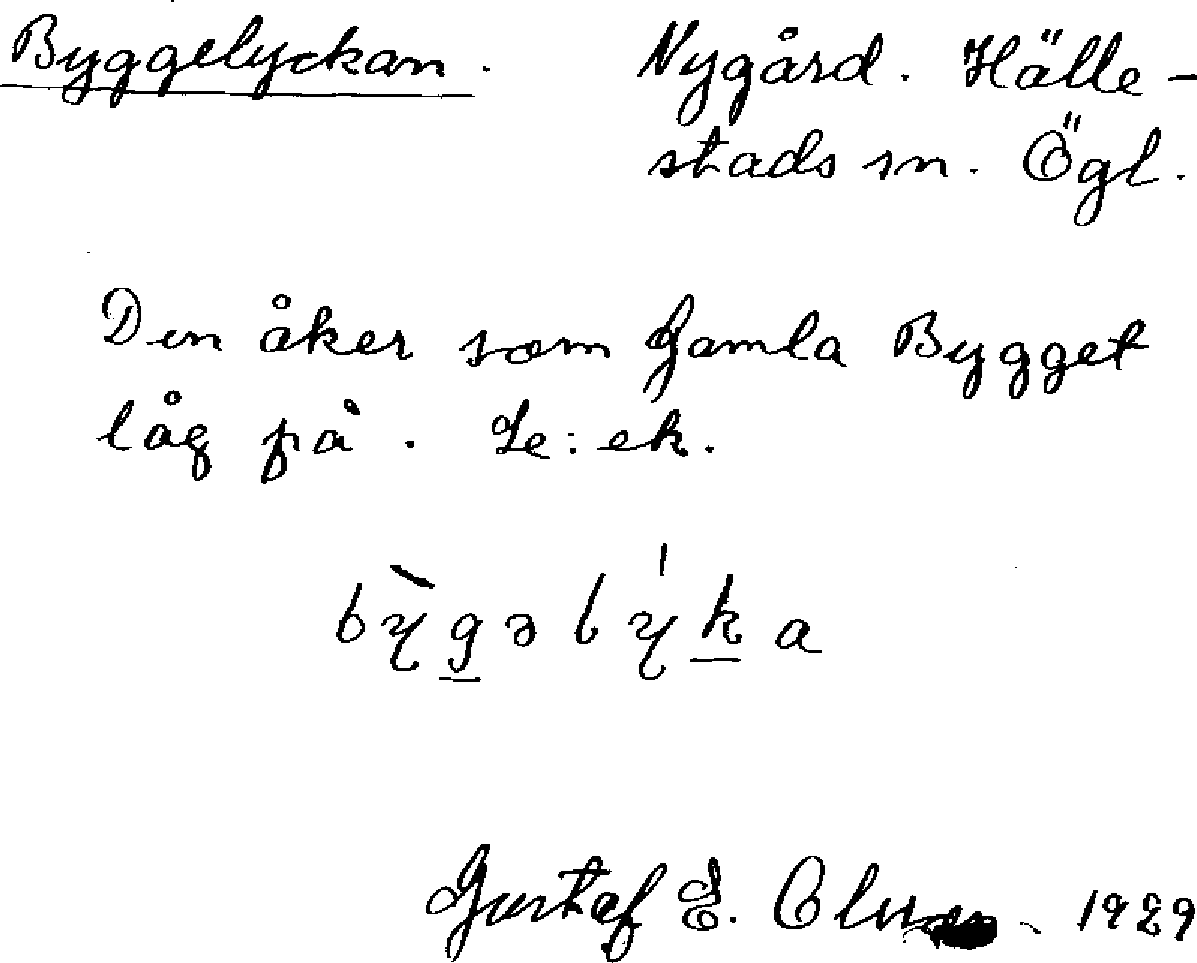 Byggelyckan. Nygård. Hälle-
stads sn. Ögl.
Den åker som Gamla Bygget
låg på. Le: ek.
bỳgəlýka
Gustaf E. 1929